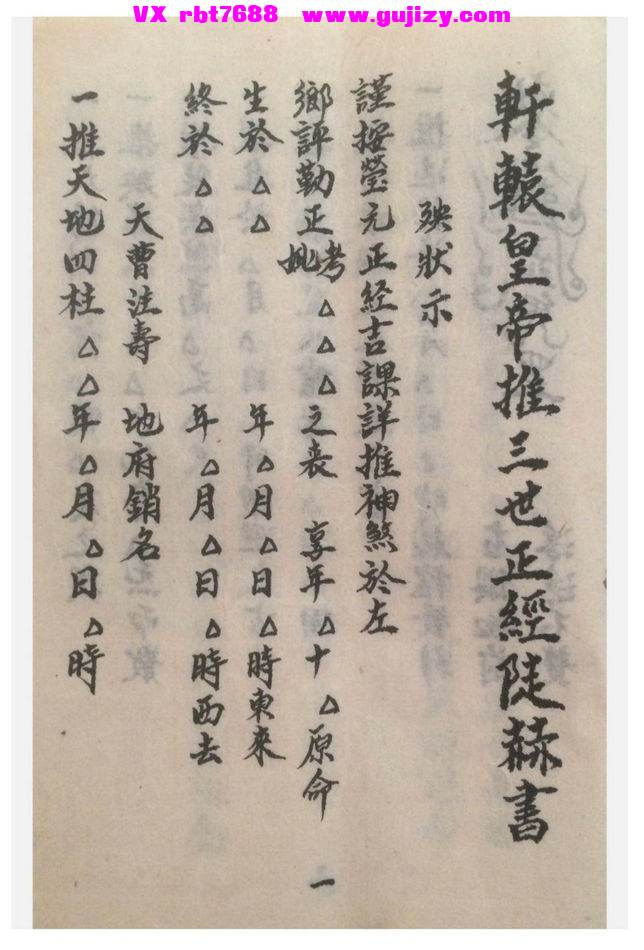 VX rbt7688 www.gujizy.com
軒轅皇帝推三世正經陡赫書
殃狀示
謹按瑩元正经吉課詳推神煞於左
鄉評勤正考妣△△△之喪 享年△十△原命
生於△△ 年△月△日△時東來
終於△△ 年△月△日△時西去
天曹注壽 地府銷名
一推天地四柱△△年△月△日△時
一